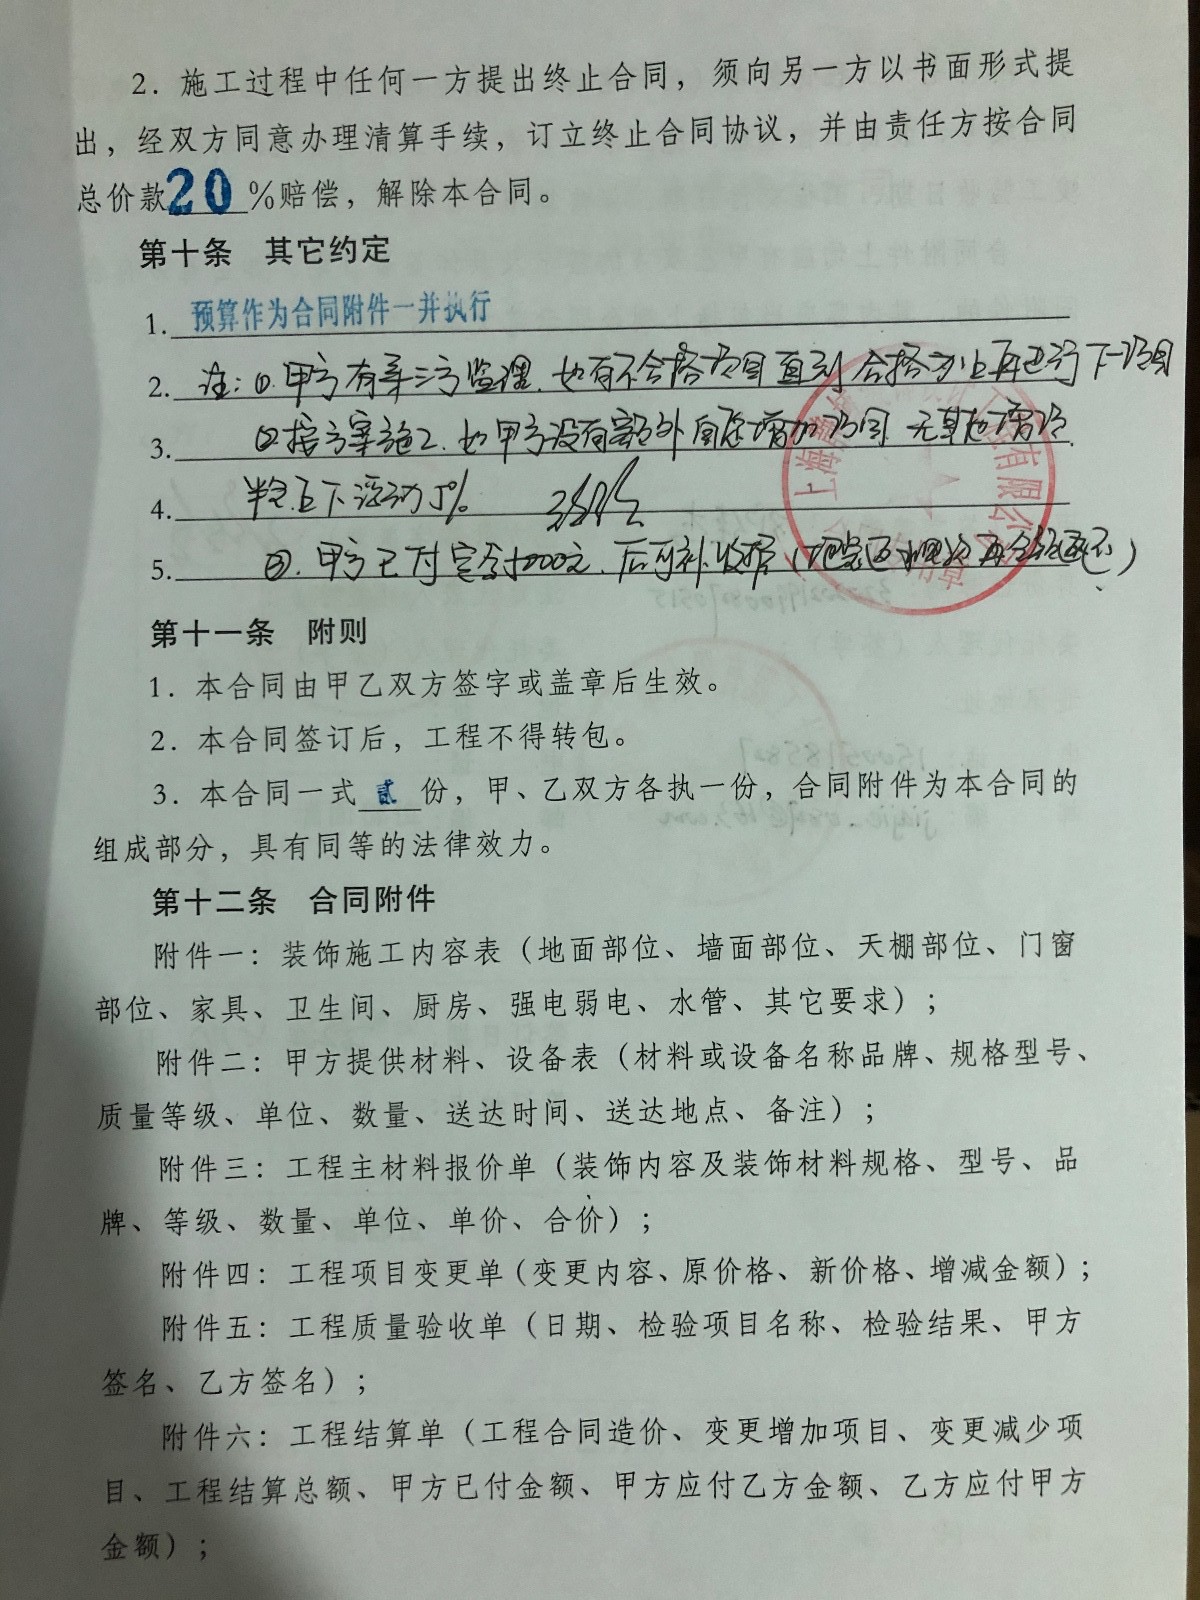 2. 施工过程中任何一方提出终止合同，须向另一方以书面形式提
出，经双方同意办理清算手续，订立终止合同协议，并由责任方按合同
总价款20%赔偿，解除本合同。
第十条 其它约定
1. 预算作为合同附件一并执行
2. 注：①.甲方有第三方监理.如有不合格项目直到合格为止再进行下一项目
3. ②按方案施工.如甲方没有额外自愿增加项目 无其他增项.
4. 上下浮动5%
5. ③.甲方已付定金 元.后可补收据（
上海 有限公司
用章
第十一条 附则
1. 本合同由甲乙双方签字或盖章后生效。
2. 本合同签订后，工程不得转包。
3. 本合同一式 贰 份，甲、乙双方各执一份，合同附件为本合同的
组成部分，具有同等的法律效力。
第十二条 合同附件
附件一：装饰施工内容表（地面部位、墙面部位、天棚部位、门窗
部位、家具、卫生间、厨房、强电弱电、水管、其它要求）；
附件二：甲方提供材料、设备表（材料或设备名称品牌、规格型号、
质量等级、单位、数量、送达时间、送达地点、备注）；
附件三：工程主材料报价单（装饰内容及装饰材料规格、型号、品
牌、等级、数量、单位、单价、合价）；
附件四：工程项目变更单（变更内容、原价格、新价格、增减金额）；
附件五：工程质量验收单（日期、检验项目名称、检验结果、甲方
签名、乙方签名）；
附件六：工程结算单（工程合同造价、变更增加项目、变更减少项
目、工程结算总额、甲方已付金额、甲方应付乙方金额、乙方应付甲方
金额）；